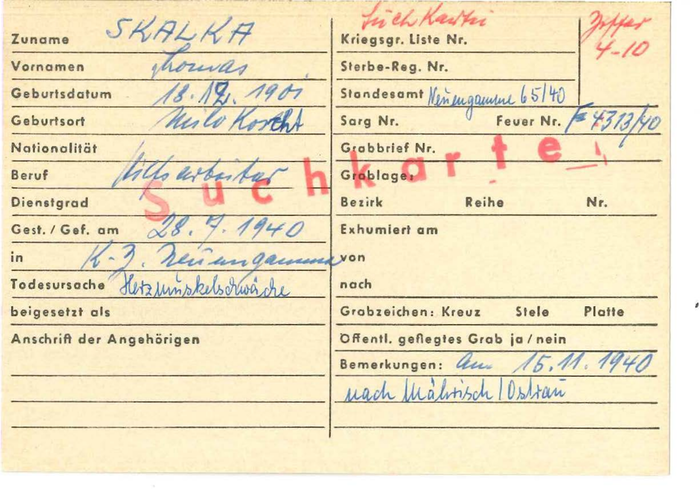 Zuname SKALKA
Vornamen Thomas
Geburtsdatum 18.12.1901
Geburtsort
Nationalität
Beruf
Dienstgrad
Gest. / Gef. am 28.7.1940
in K-Z. Neuengamme
Todesursache Herzmuskelschwäche
beigesetzt als
Anschrift der Angehörigen
Suchkartei
Ziffer
4-10
Kriegsgr. Liste Nr.
Sterbe-Reg. Nr.
Standesamt Neuengamme 65/40
Sarg Nr. Feuer Nr. F=4313/40
Grabbrief Nr.
Grablage:
Bezirk Reihe Nr.
Exhumiert am
von
nach
Grabzeichen: Kreuz Stele Platte
Öffentl. gepflegtes Grab ja/nein
Bemerkungen: am 15.11.1940
nach Mährisch/Ostrau
Suchkartei